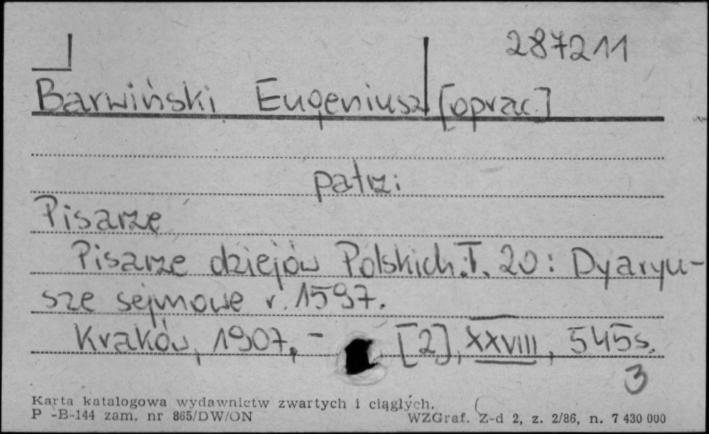 287211
Barwiński Eugeniusz [oprac.]
patrz:
Pisarze
Pisarze dziejów Polskich. T. 20: Dyaryu-
sze sejmowe r. 1597.
Kraków, 1907, - [2], XXVIII, 545s.
3
Karta katalogowa wydawnictw zwartych i ciągłych.
P -B-144 zam. nr 865/DW/ON WZGraf. Z-d 2, z. 2/86, n. 7 430 000